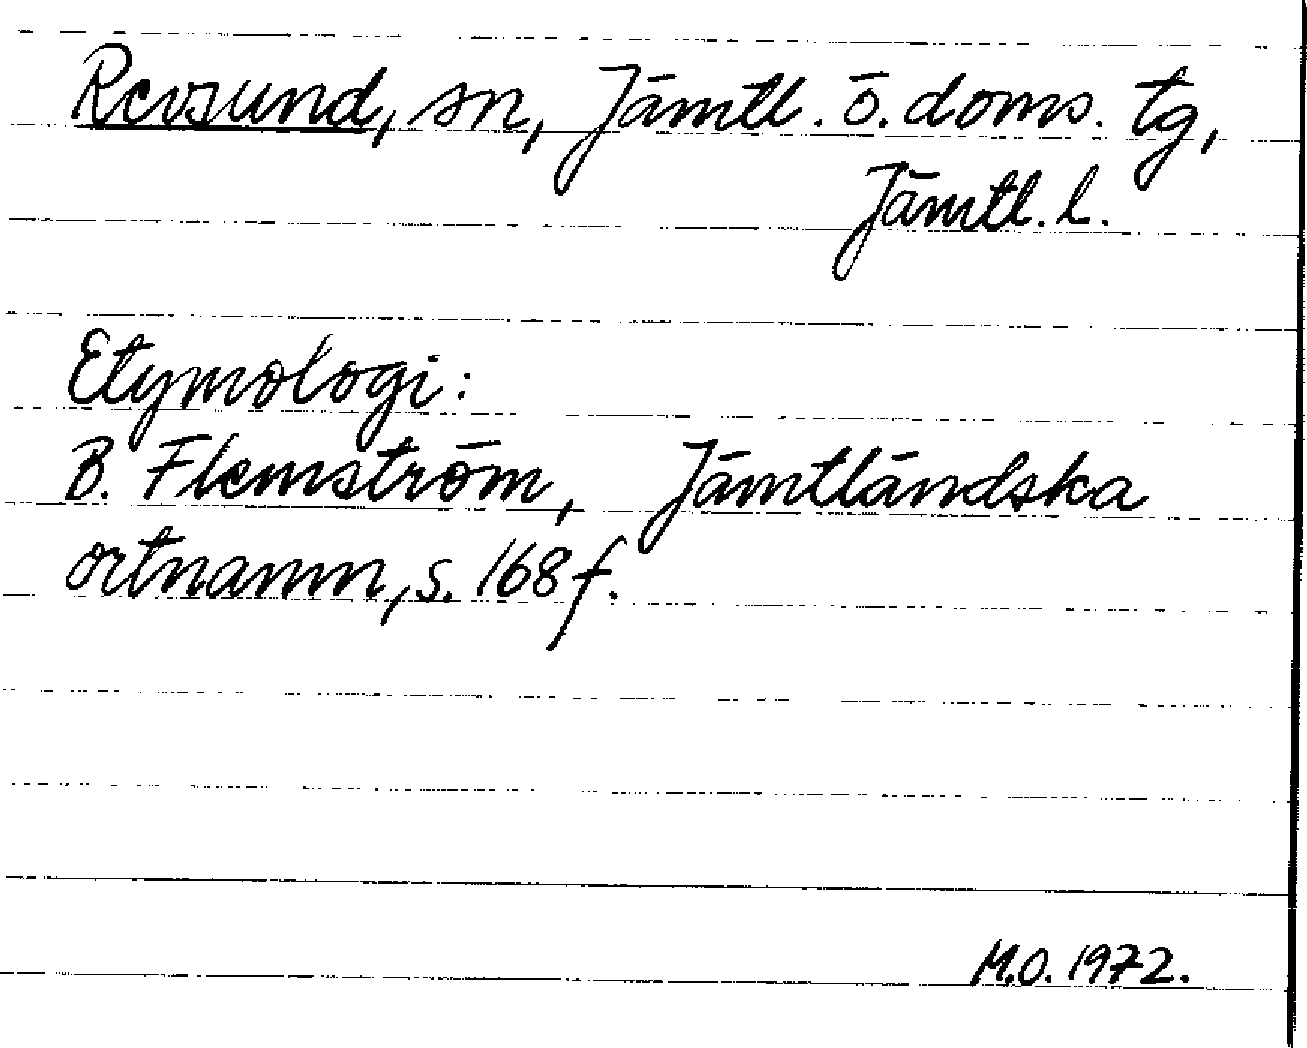 Revsund, sn, Jämtl. ö. doms. tg,
Jämtl. l.
Etymologi:
B. Flemström, Jämtländska
ortnamn, s. 168 f.
M.O. 1972.